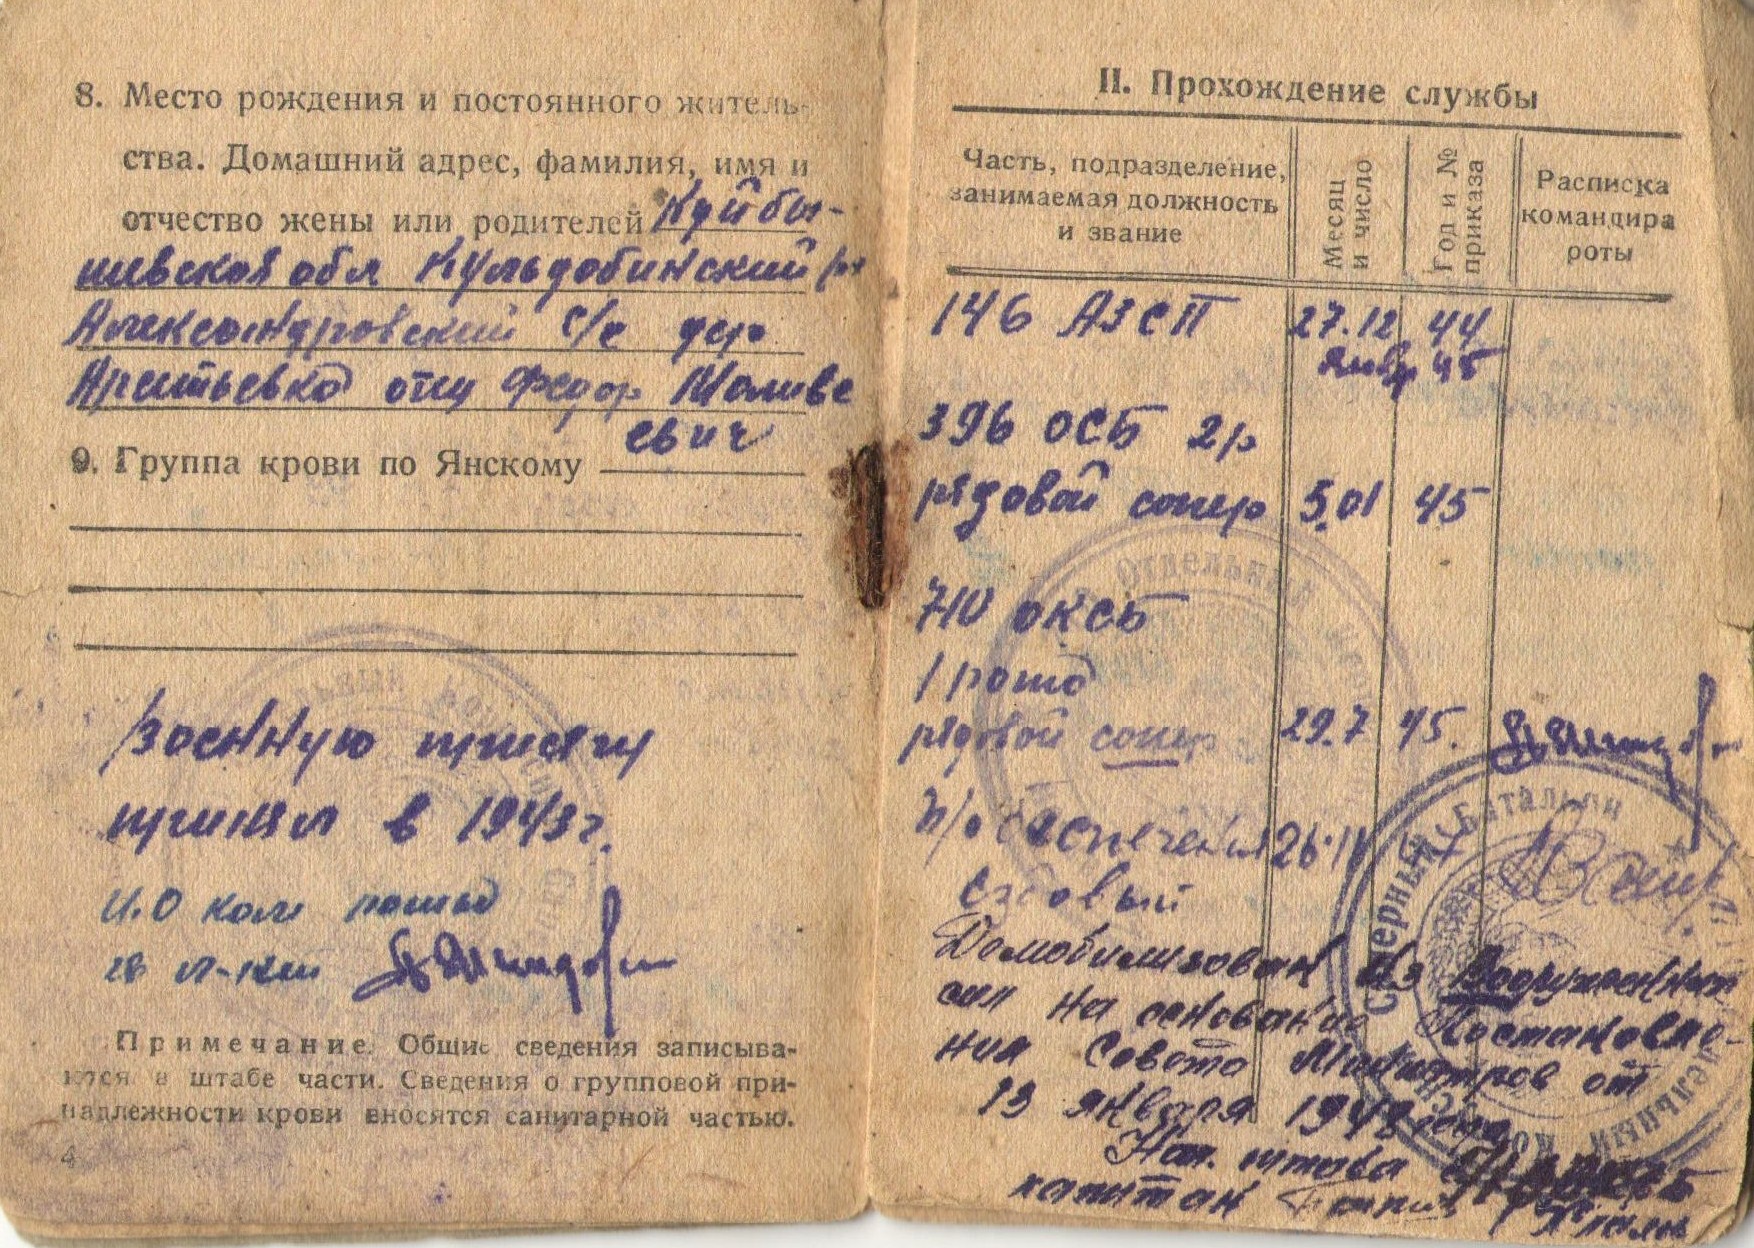 8. Место рождения и постоянного житель-
ства. Домашний адрес, фамилия, имя и
отчество жены или родителей Куйбы-
шевская обл Кульдобинский р-н
Александровский с/с дер
Арсть­евка отец Федор Матве
евич
9. Группа крови по Янскому
Военную присягу
принял в 1943 г.
И.О ком роты
гв л-кий
Примечание. Общие сведения записыва-
ются в штабе части. Сведения о групповой при-
надлежности крови вносятся санитарной частью.
4
II. Прохождение службы
Часть, подразделение, занимаемая должность и звание
Месяц и число
Год и № приказа
Расписка командира роты
146 АЗСП 27.12 44
янв 45
396 ОСБ 2р
рядовой сапер 5.01 45
710 ОКСБ
1 рота
рядовой сапер 29.7 45.
б/обеспечения 26.11
Ездовый
Демобилизован из Вооруженных
сил на основание Постановле-
ния Совета Министров от
13 января 1948 года
Нач. штаба
капитан
Отдельный
саперный батальон